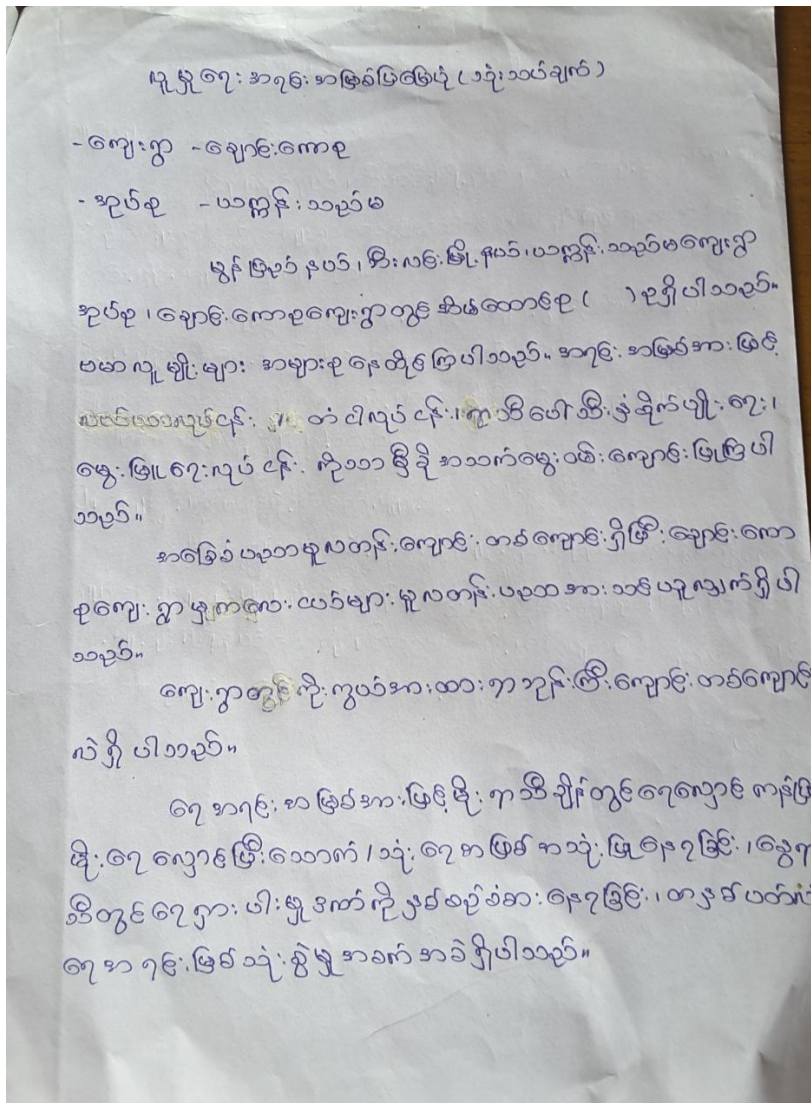 လူမှုရေး အရင်း အမြစ်ပြမြေပုံ (သုံးသပ်ချက်)
- ကျေးရွာ - ချောင်းကောစု
- အုပ်စု - ယက္ကန်းသည်မ
မွန်ပြည်နယ်၊ ဘီးလင်းမြို့နယ်၊ ယက္ကန်းသည်မကျေးရွာ
အုပ်စု၊ ချောင်းကောစုကျေးရွာတွင် အိမ်ထောင်စု ( ) စုရှိပါသည်။
ဗမာလူမျိုးများ အများစုနေထိုင်ကြပါသည်။ အရင်းအမြစ်အားဖြင့်
လယ်ယာလုပ်ငန်း၊ တံငါလုပ်ငန်း၊ ရာသီပေါ်သီးနှံစိုက်ပျိုးရေး၊
မွေးမြူရေးလုပ်ငန်း ကိုသာမှီခိုအသက်မွေးဝမ်းကျောင်းပြုကြပါ
သည်။
အခြေခံပညာမူလတန်းကျောင်းတစ်ကျောင်းရှိပြီး ချောင်းကော
စုကျေးရွာမှကလေးငယ်များ မူလတန်းပညာအား သင်ယူလျှက်ရှိပါ
သည်။
ကျေးရွာတွင်ကိုးကွယ်အားထားရာဘုန်းကြီးကျောင်းတစ်ကျောင်း
လဲရှိပါသည်။
ရေအရင်းအမြစ်အားဖြင့်မိုးရာသီချိန်တွင်ရေလှောင်ကန်ဖြင့်
မိုးရေလှောင်ပြီးသောက်/သုံးရေအဖြစ်အသုံးပြုနေရခြင်း၊ နွေရာ
သီတွင်ရေရှားပါးမှုဒဏ်ကိုနှစ်စဉ်ခံစားနေရခြင်း၊ တနှစ်ပတ်လုံး
ရေအရင်းမြစ်သုံးစွဲမှုအခက်အခဲရှိပါသည်။